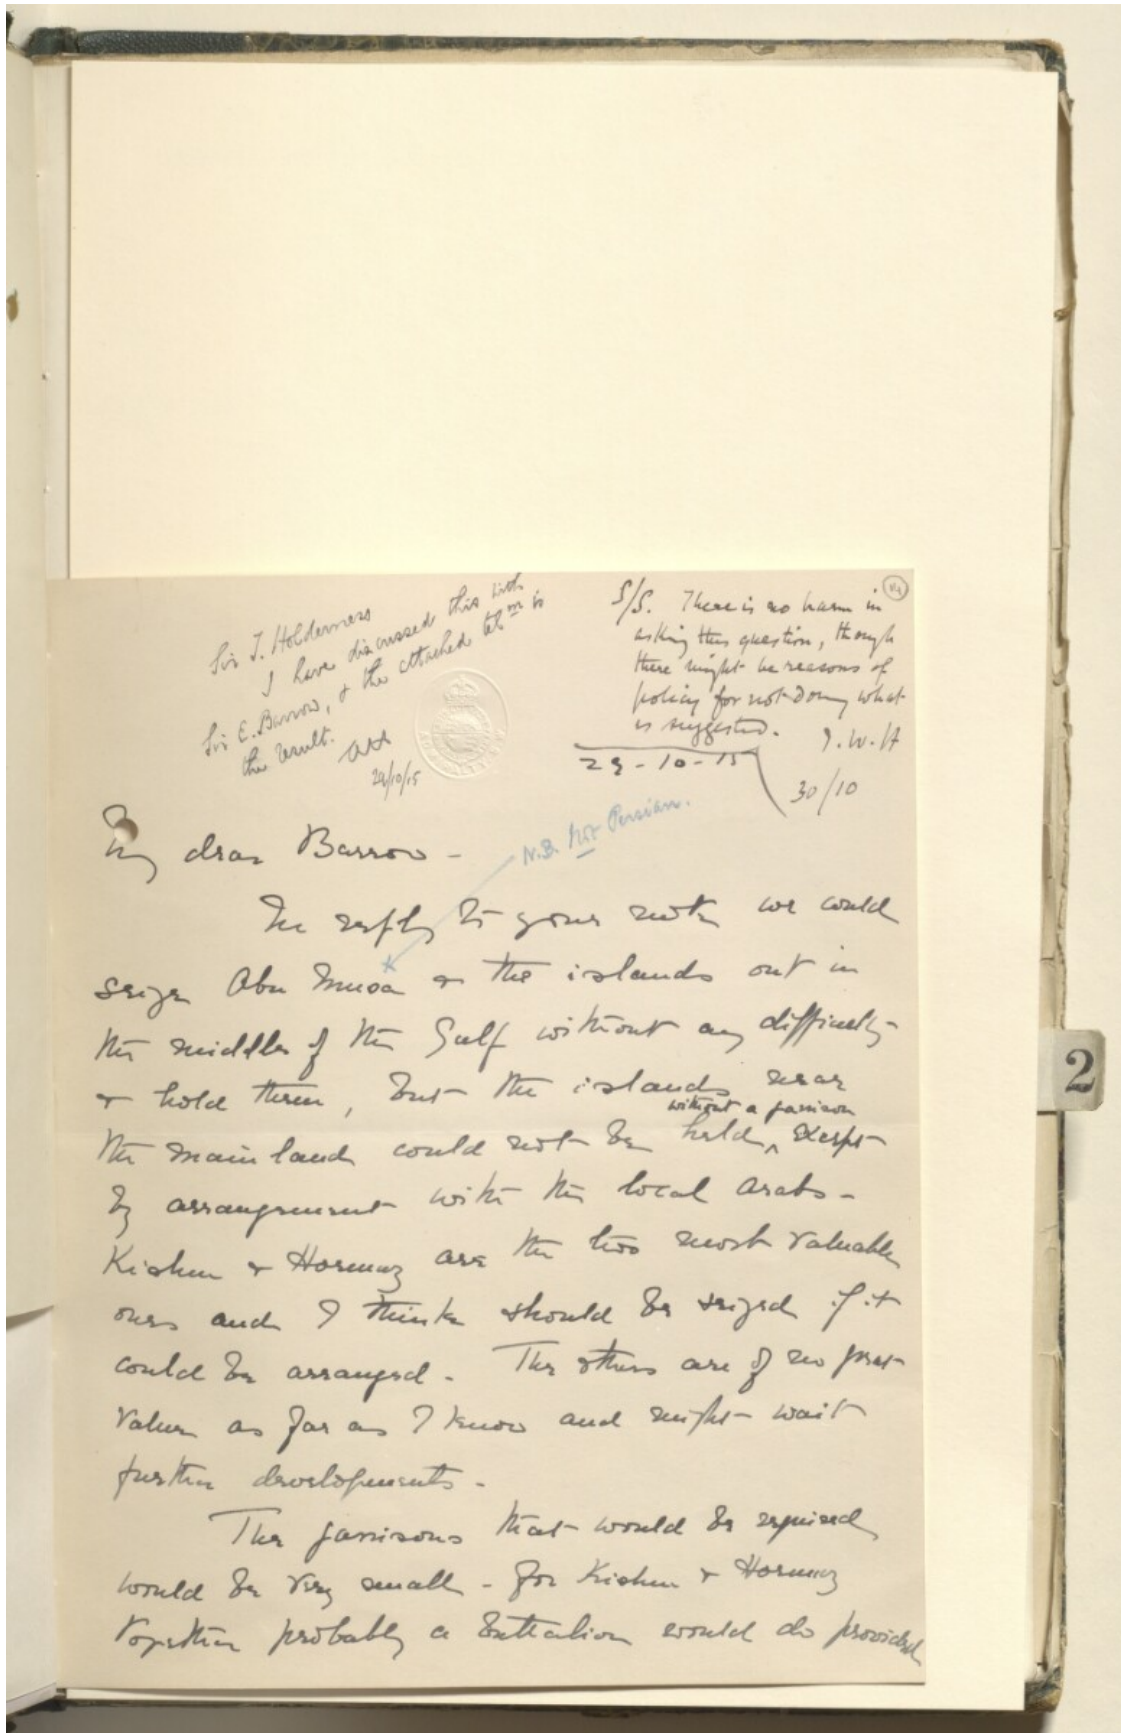 Sir T. Holderness
I have discussed this with
Sir E. Barrow, & the attached tel^m is
the result.
AH
29/10/15
S/S. There is no harm in
asking this question, though
there might be reasons of
policy for not doing what
is suggested.
T.W.H
29-10-15
30/10
N.B. Not Persian.
My dear Barrow -
In reply to your note we could
seize Abu Musa & the islands out in
the middle of the Gulf without any difficulty
& hold them, but the islands near
without a garrison
the mainland could not be held, except
by arrangement with the local Arabs -
Kishm & Hormuz are the two most valuable
ones and I think should be seized if it
could be arranged - The others are of no great
value as far as I know and might wait
further developments -
The garrisons that would be required
would be very small - for Kishm & Hormuz
together probably a battalion would do provided
2